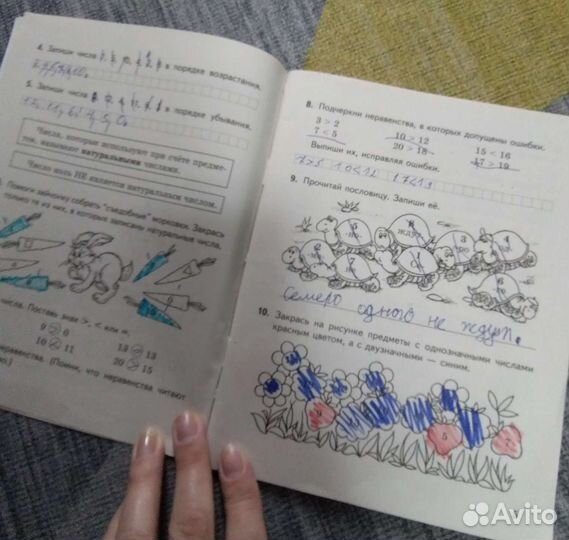 4. Запиши числа в порядке возрастания.
5. Запиши числа в порядке убывания.
Числа, которые используют при счёте предме-
тов, называют натуральными числами.
Число ноль НЕ является натуральным числом.
Помоги зайчонку собрать "съедобные" морковки. Закрась
только те из них, в которых записаны натуральные числа.
числа. Поставь знак >, < или =.
9 > 0
13 = 13
10 < 11
20 > 15
неравенства. (Помни, что неравенства читают
8. Подчеркни неравенства, в которых допущены ошибки.
3 > 2
10 > 12
15 < 16
7 < 5
20 > 18
17 > 19
Выпиши их, исправляя ошибки.
7>5 10<12 17<19
9. Прочитай пословицу. Запиши её.
Семеро одного не ждут.
10. Закрась на рисунке предметы с однозначными числами
красным цветом, а с двузначными — синим.
Avito